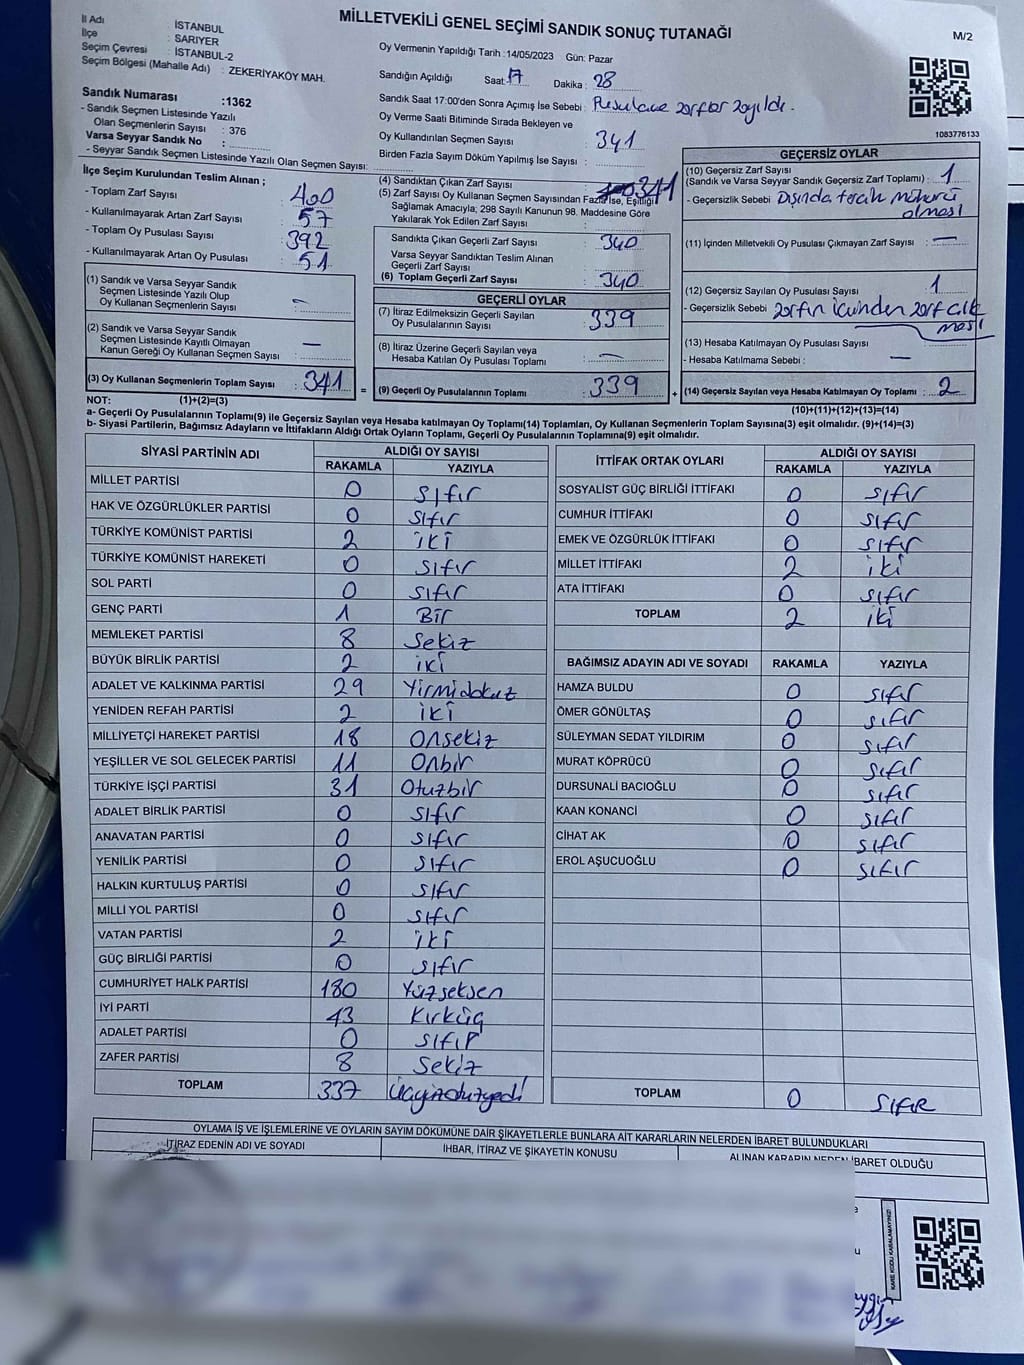 MİLLETVEKİLİ GENEL SEÇİMİ SANDIK SONUÇ TUTANAĞI
M/2
İl Adı : İSTANBUL
İlçe : SARIYER
Seçim Çevresi : İSTANBUL-2
Seçim Bölgesi (Mahalle Adı) : ZEKERİYAKÖY MAH.
Sandık Numarası :1362
- Sandık Seçmen Listesinde Yazılı
Olan Seçmenlerin Sayısı : 376
Varsa Seyyar Sandık No :
- Seyyar Sandık Seçmen Listesinde Yazılı Olan Seçmen Sayısı:
Oy Vermenin Yapıldığı Tarih :14/05/2023 Gün: Pazar
Sandığın Açıldığı Saat: 17 Dakika : 28
Sandık Saat 17:00'den Sonra Açımış İse Sebebi : Pusulave zarflar sayıldı.
Oy Verme Saati Bitiminde Sırada Bekleyen ve
Oy Kullandırılan Seçmen Sayısı : 341
Birden Fazla Sayım Döküm Yapılmış İse Sayısı :
1083776133
İlçe Seçim Kurulundan Teslim Alınan ;
- Toplam Zarf Sayısı : 400
- Kullanılmayarak Artan Zarf Sayısı : 57
- Toplam Oy Pusulası Sayısı : 392
- Kullanılmayarak Artan Oy Pusulası : 51
(1) Sandık ve Varsa Seyyar Sandık
Seçmen Listesinde Yazılı Olup
Oy Kullanan Seçmenlerin Sayısı : —
(2) Sandık ve Varsa Seyyar Sandık
Seçmen Listesinde Kayıtlı Olmayan
Kanun Gereği Oy Kullanan Seçmen Sayısı : —
(3) Oy Kullanan Seçmenlerin Toplam Sayısı : 341 =
(4) Sandıktan Çıkan Zarf Sayısı : 341
(5) Zarf Sayısı Oy Kullanan Seçmen Sayısından Fazla İse, Eşitliği
Sağlamak Amacıyla; 298 Sayılı Kanunun 98. Maddesine Göre
Yakılarak Yok Edilen Zarf Sayısı :
Sandıkta Çıkan Geçerli Zarf Sayısı : 340
Varsa Seyyar Sandıktan Teslim Alınan
Geçerli Zarf Sayısı :
(6) Toplam Geçerli Zarf Sayısı : 340
GEÇERLİ OYLAR
(7) İtiraz Edilmeksizin Geçerli Sayılan
Oy Pusulalarının Sayısı : 339
(8) İtiraz Üzerine Geçerli Sayılan veya
Hesaba Katılan Oy Pusulası Toplamı : —
(9) Geçerli Oy Pusulalarının Toplamı : 339 +
GEÇERSİZ OYLAR
(10) Geçersiz Zarf Sayısı
(Sandık ve Varsa Seyyar Sandık Geçersiz Zarf Toplamı) : 1
- Geçersizlik Sebebi : Dışında tercih mühürü
olması
(11) İçinden Milletvekili Oy Pusulası Çıkmayan Zarf Sayısı : —
(12) Geçersiz Sayılan Oy Pusulası Sayısı : 1
- Geçersizlik Sebebi : zarfın içinden zarf çık
ması
(13) Hesaba Katılmayan Oy Pusulası Sayısı :
- Hesaba Katılmama Sebebi : —
(14) Geçersiz Sayılan veya Hesaba Katılmayan Oy Toplamı : 2
NOT: (1)+(2)=(3)
(10)+(11)+(12)+(13)=(14)
a- Geçerli Oy Pusulalarının Toplamı(9) ile Geçersiz Sayılan veya Hesaba katılmayan Oy Toplamı(14) Toplamları, Oy Kullanan Seçmenlerin Toplam Sayısına(3) eşit olmalıdır. (9)+(14)=(3)
b- Siyasi Partilerin, Bağımsız Adayların ve İttifakların Aldığı Ortak Oyların Toplamı, Geçerli Oy Pusulalarının Toplamına(9) eşit olmalıdır.
SİYASİ PARTİNİN ADI ALDIĞI OY SAYISI
RAKAMLA YAZIYLA
MİLLET PARTİSİ 0 sıfır
HAK VE ÖZGÜRLÜKLER PARTİSİ 0 sıfır
TÜRKİYE KOMÜNİST PARTİSİ 2 iki
TÜRKİYE KOMÜNİST HAREKETİ 0 sıfır
SOL PARTİ 0 sıfır
GENÇ PARTİ 1 Bir
MEMLEKET PARTİSİ 8 Sekiz
BÜYÜK BİRLİK PARTİSİ 2 iki
ADALET VE KALKINMA PARTİSİ 29 Yirmidokuz
YENİDEN REFAH PARTİSİ 2 iki
MİLLİYETÇİ HAREKET PARTİSİ 18 Onsekiz
YEŞİLLER VE SOL GELECEK PARTİSİ 11 Onbir
TÜRKİYE İŞÇİ PARTİSİ 31 Otuzbir
ADALET BİRLİK PARTİSİ 0 sıfır
ANAVATAN PARTİSİ 0 sıfır
YENİLİK PARTİSİ 0 sıfır
HALKIN KURTULUŞ PARTİSİ 0 sıfır
MİLLİ YOL PARTİSİ 0 sıfır
VATAN PARTİSİ 2 iki
GÜÇ BİRLİĞİ PARTİSİ 0 sıfır
CUMHURİYET HALK PARTİSİ 180 Yüzseksen
İYİ PARTİ 43 Kırküç
ADALET PARTİSİ 0 sıfır
ZAFER PARTİSİ 8 Sekiz
TOPLAM 337 Üçyüzotuzyedi
İTTİFAK ORTAK OYLARI ALDIĞI OY SAYISI
RAKAMLA YAZIYLA
SOSYALİST GÜÇ BİRLİĞİ İTTİFAKI 0 sıfır
CUMHUR İTTİFAKI 0 sıfır
EMEK VE ÖZGÜRLÜK İTTİFAKI 0 sıfır
MİLLET İTTİFAKI 2 iki
ATA İTTİFAKI 0 sıfır
TOPLAM 2 iki
BAĞIMSIZ ADAYIN ADI VE SOYADI RAKAMLA YAZIYLA
HAMZA BULDU 0 sıfır
ÖMER GÖNÜLTAŞ 0 sıfır
SÜLEYMAN SEDAT YILDIRIM 0 sıfır
MURAT KÖPRÜCÜ 0 sıfır
DURSUNALİ BACIOĞLU 0 sıfır
KAAN KONANCİ 0 sıfır
CİHAT AK 0 sıfır
EROL AŞUCUOĞLU 0 sıfır
TOPLAM 0 SIFIR
OYLAMA İŞ VE İŞLEMLERİNE VE OYLARIN SAYIM DÖKÜMÜNE DAİR ŞİKAYETLERLE BUNLARA AİT KARARLARIN NELERDEN İBARET BULUNDUKLARI
İTİRAZ EDENİN ADI VE SOYADI
İHBAR, İTİRAZ VE ŞİKAYETİN KONUSU
ALINAN KARARIN NEDEN İBARET OLDUĞU